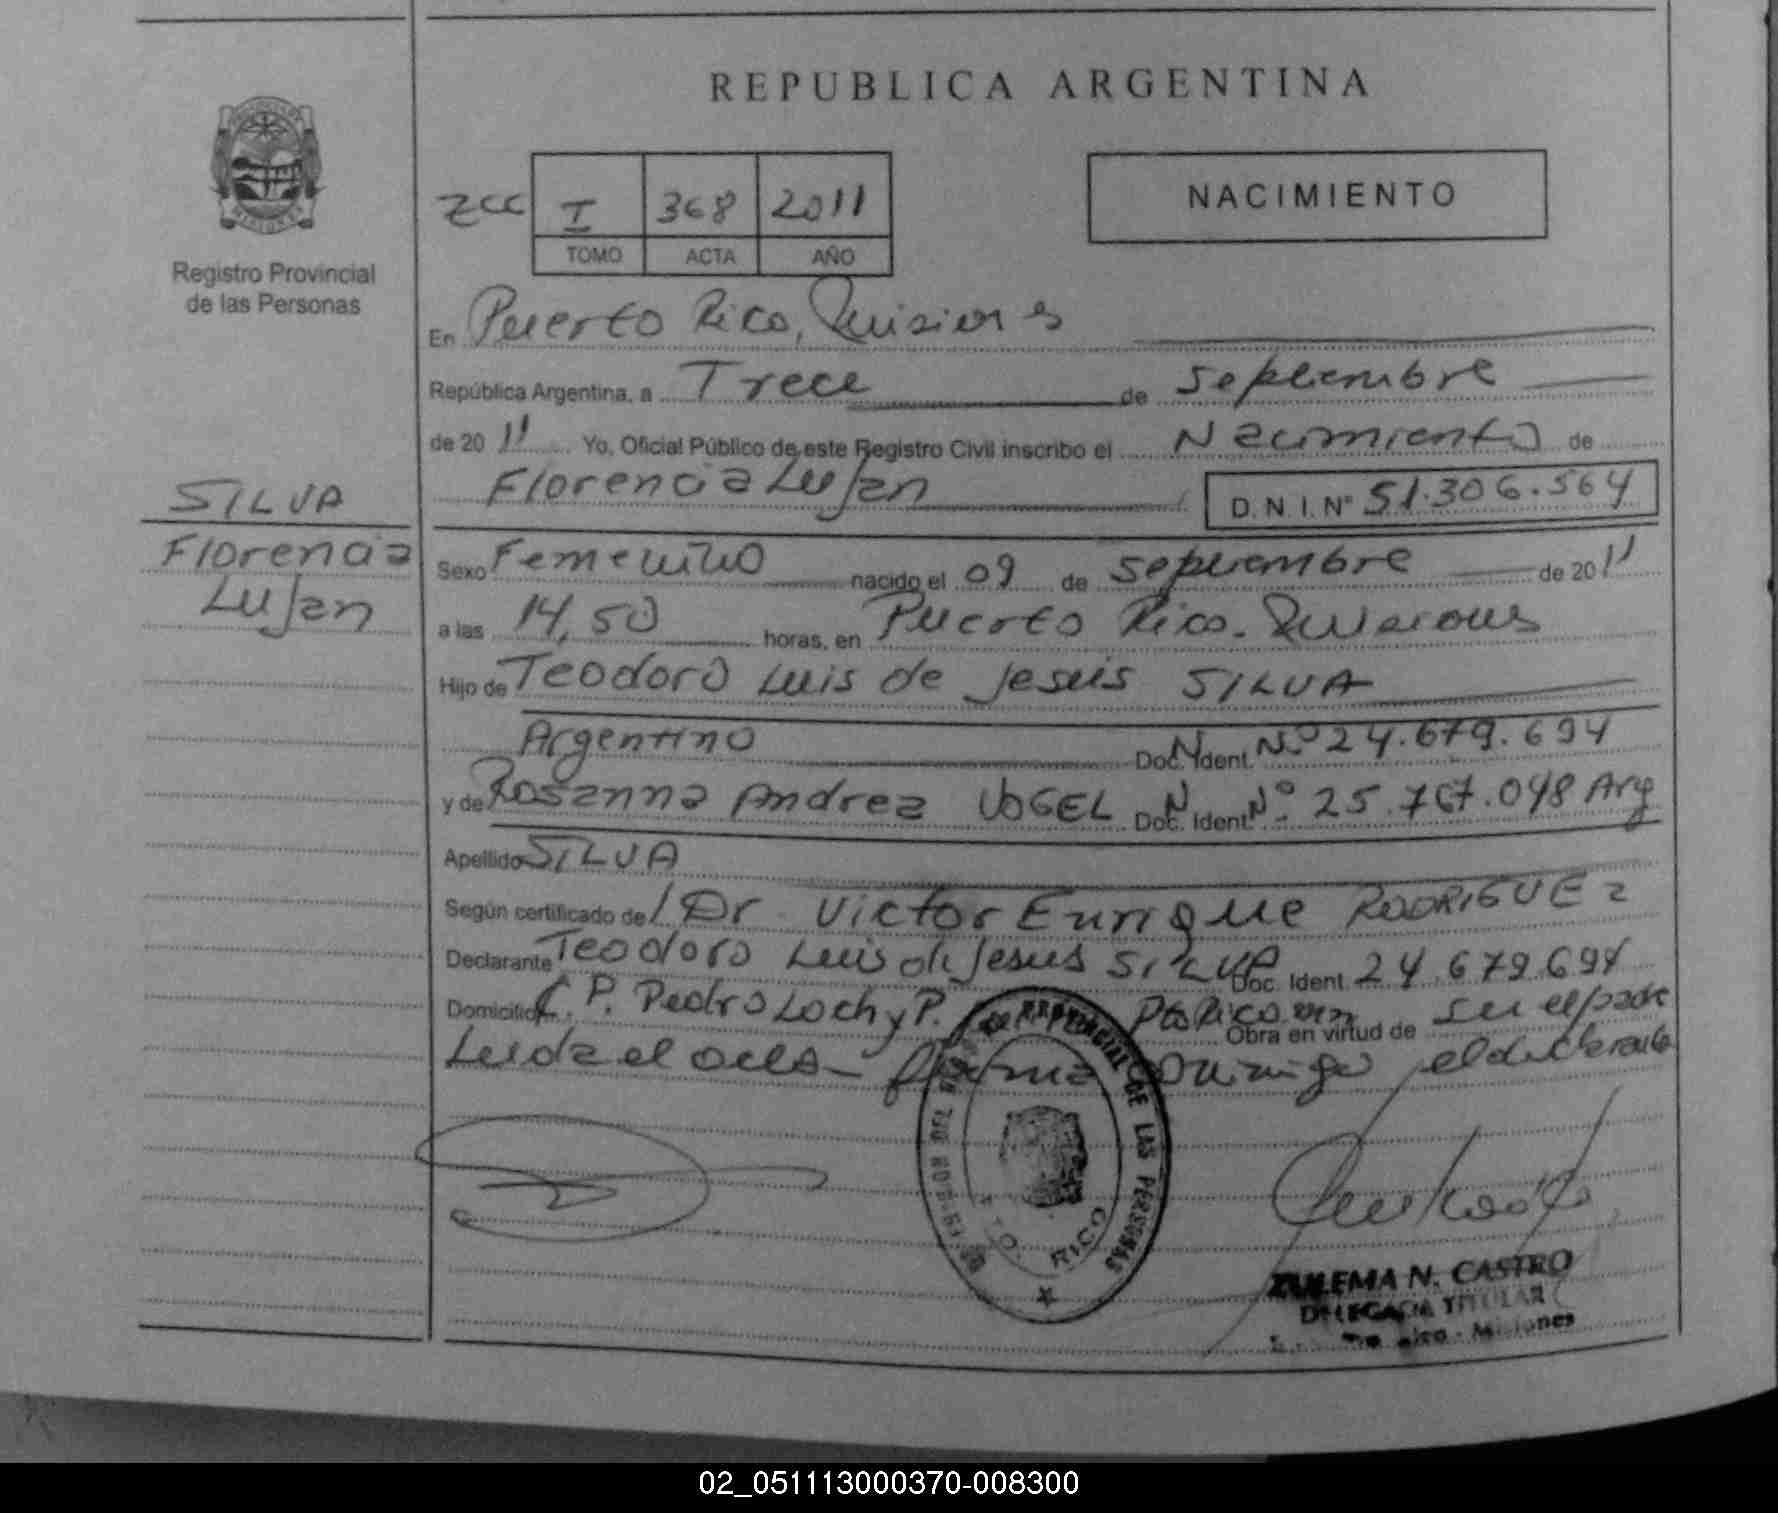 REPUBLICA ARGENTINA
PROVINCIA DE MISIONES
Registro Provincial
de las Personas
ZCC I 368 2011
TOMO ACTA AÑO
NACIMIENTO
En Puerto Rico, Misiones
República Argentina, a Trece de septiembre
de 2011 Yo, Oficial Público de este Registro Civil inscribo el Nacimiento de
Florencia Lujan D.N.I.Nº 51.306.564
SILVA
Florencia
Lujan
Sexo Femenino nacido el 09 de septiembre de 2011
a las 14,50 horas, en Puerto Rico. Misiones
Hijo de Teodoro Luis de Jesús SILVA
Argentino Doc. Ident. N.º 24.679.694
y de Rosanna Andrea VOGEL Doc. Ident. Nº 25.767.048 Arg
Apellido SILVA
Según certificado del Dr. Victor Enrique RODRIGUEZ
Declarante Teodoro Luis de Jesus SILVA Doc. Ident. 24.679.694
Domicilio C.P. Pedro Loch y P. Pto Rico Obra en virtud de ser el padre
Leida el acta firma conmigo el declarante
REG. PROVINCIAL DE LAS PERSONAS
PTO. RICO
ZULEMA N. CASTRO
DELEGADA TITULAR
Pto. Rico - Misiones
02_051113000370-008300